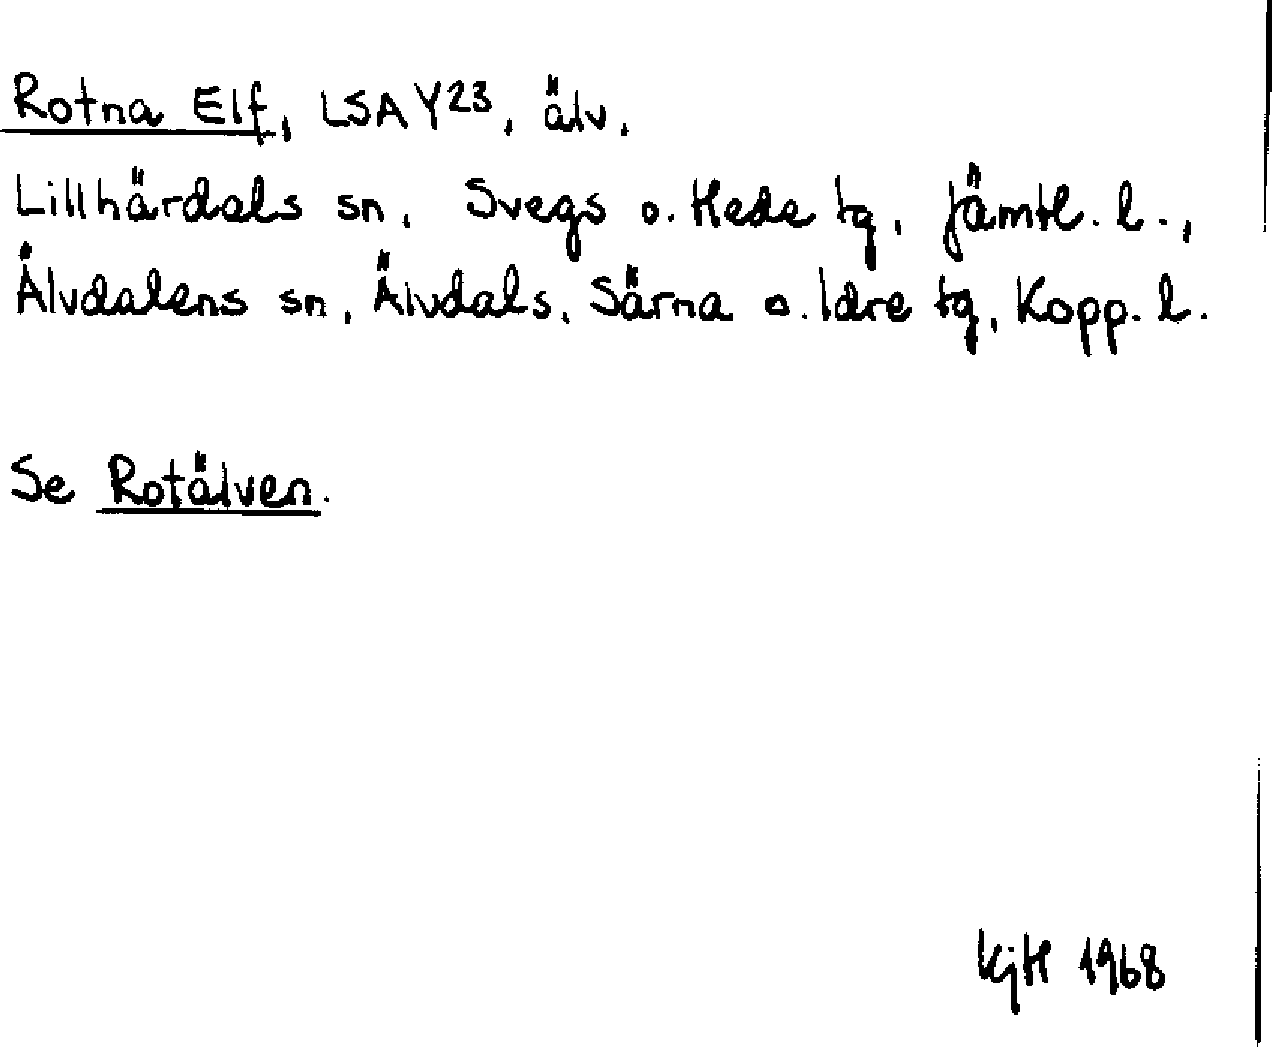 Rotna Elf, LSA Y23, älv.
Lillhärdals sn, Svegs o. Hede tg, Jämtl. l.,
Älvdalens sn, Älvdals, Särna o. Idre tg, Kopp. l.
Se Rotälven.
KjH 1968